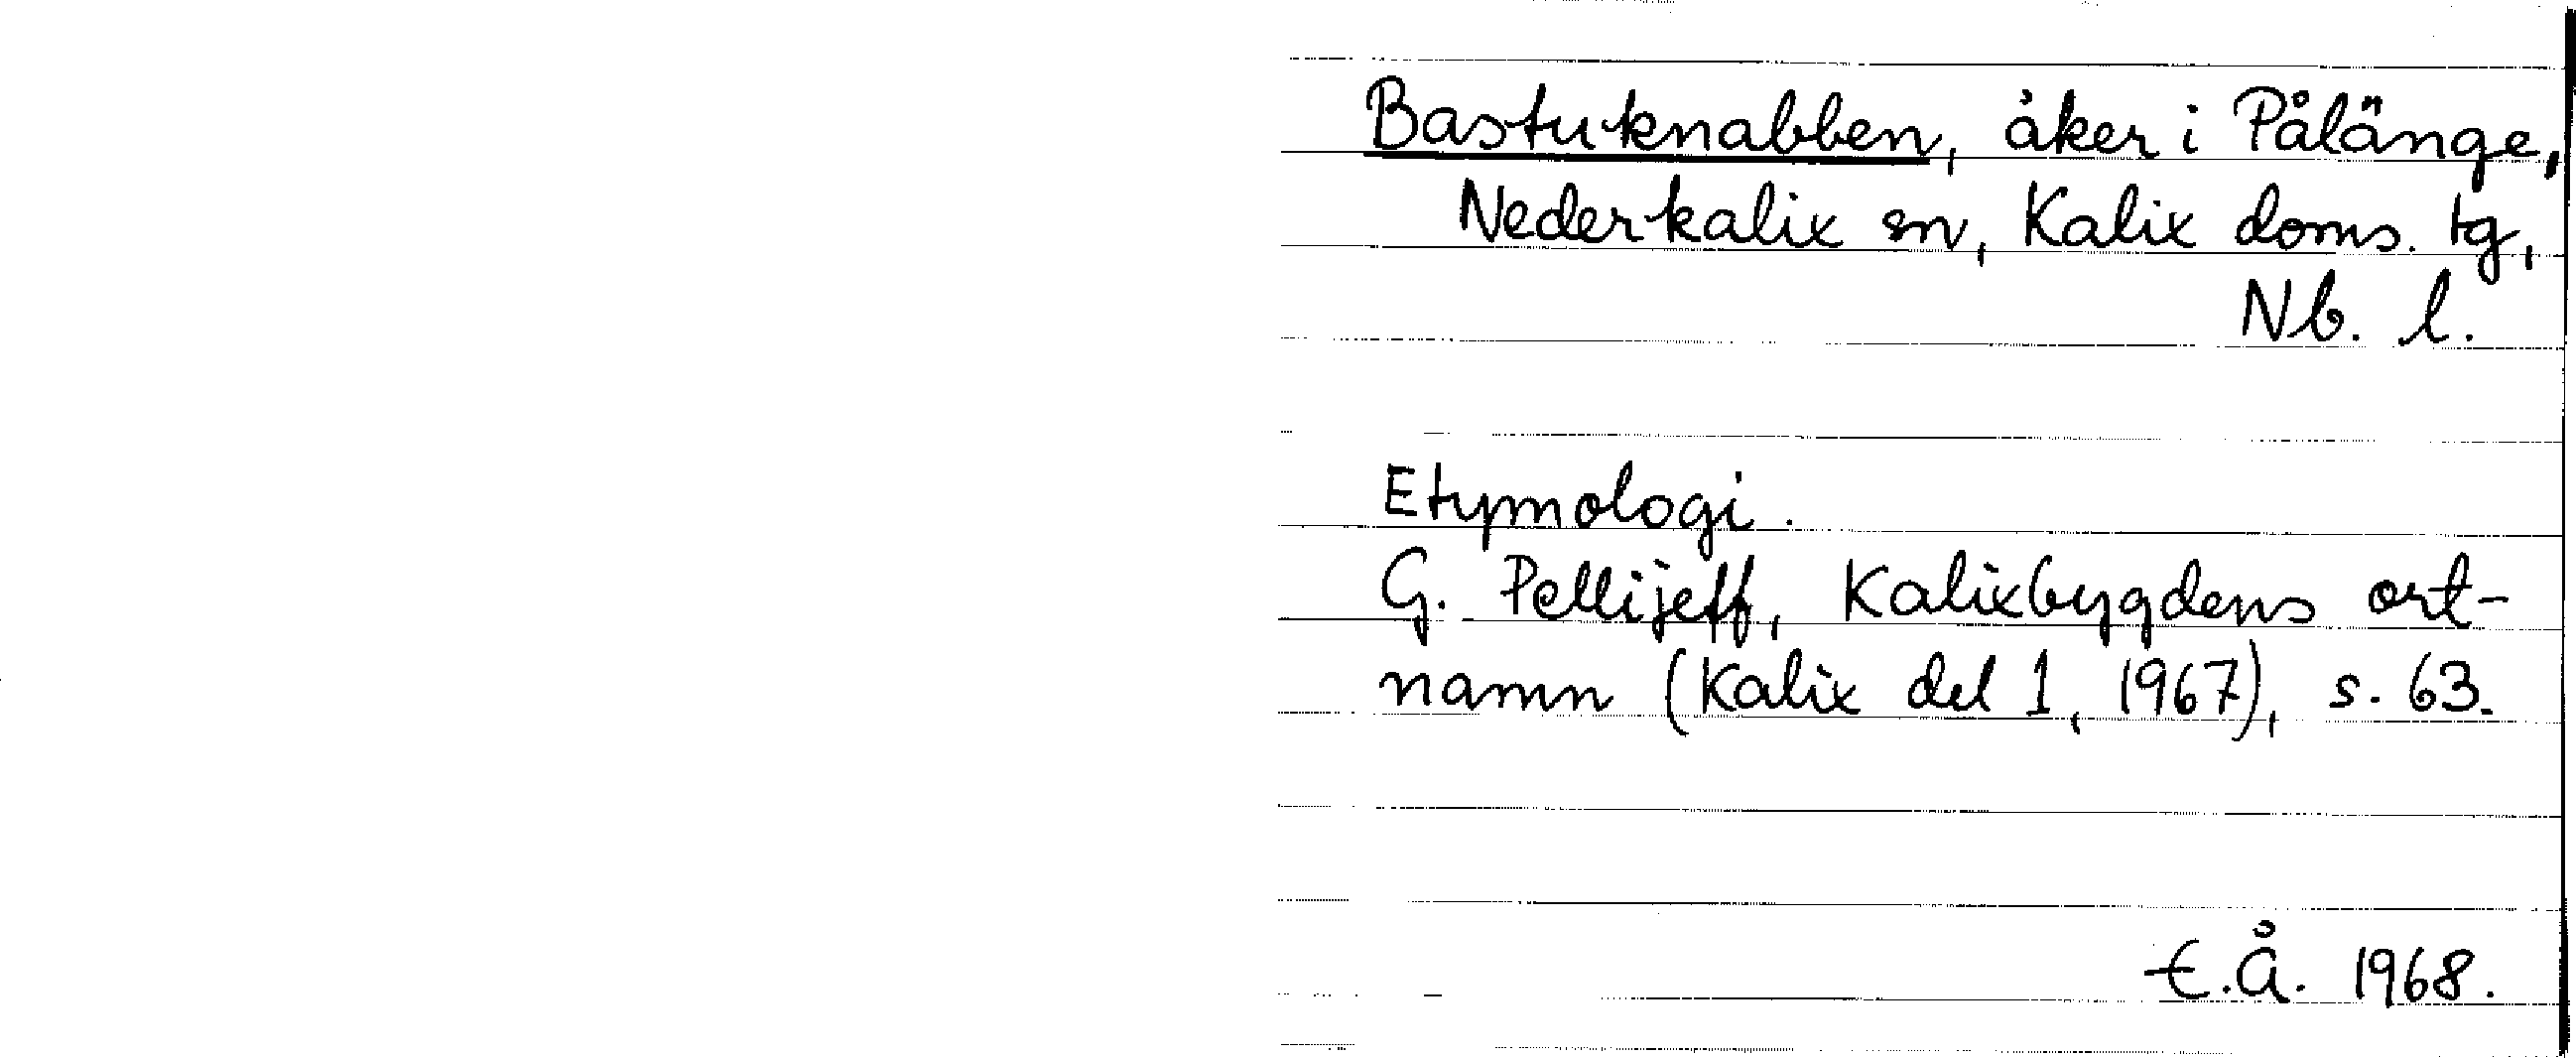 Bastuknabben, åker i Pålänge,
Nederkalix sn, Kalix doms. tg,
Nb. l.
Etymologi.
G. Pellijeff, Kalixbygdens ort-
namn (Kalix del 1, 1967), s. 63.
E.Å. 1968.